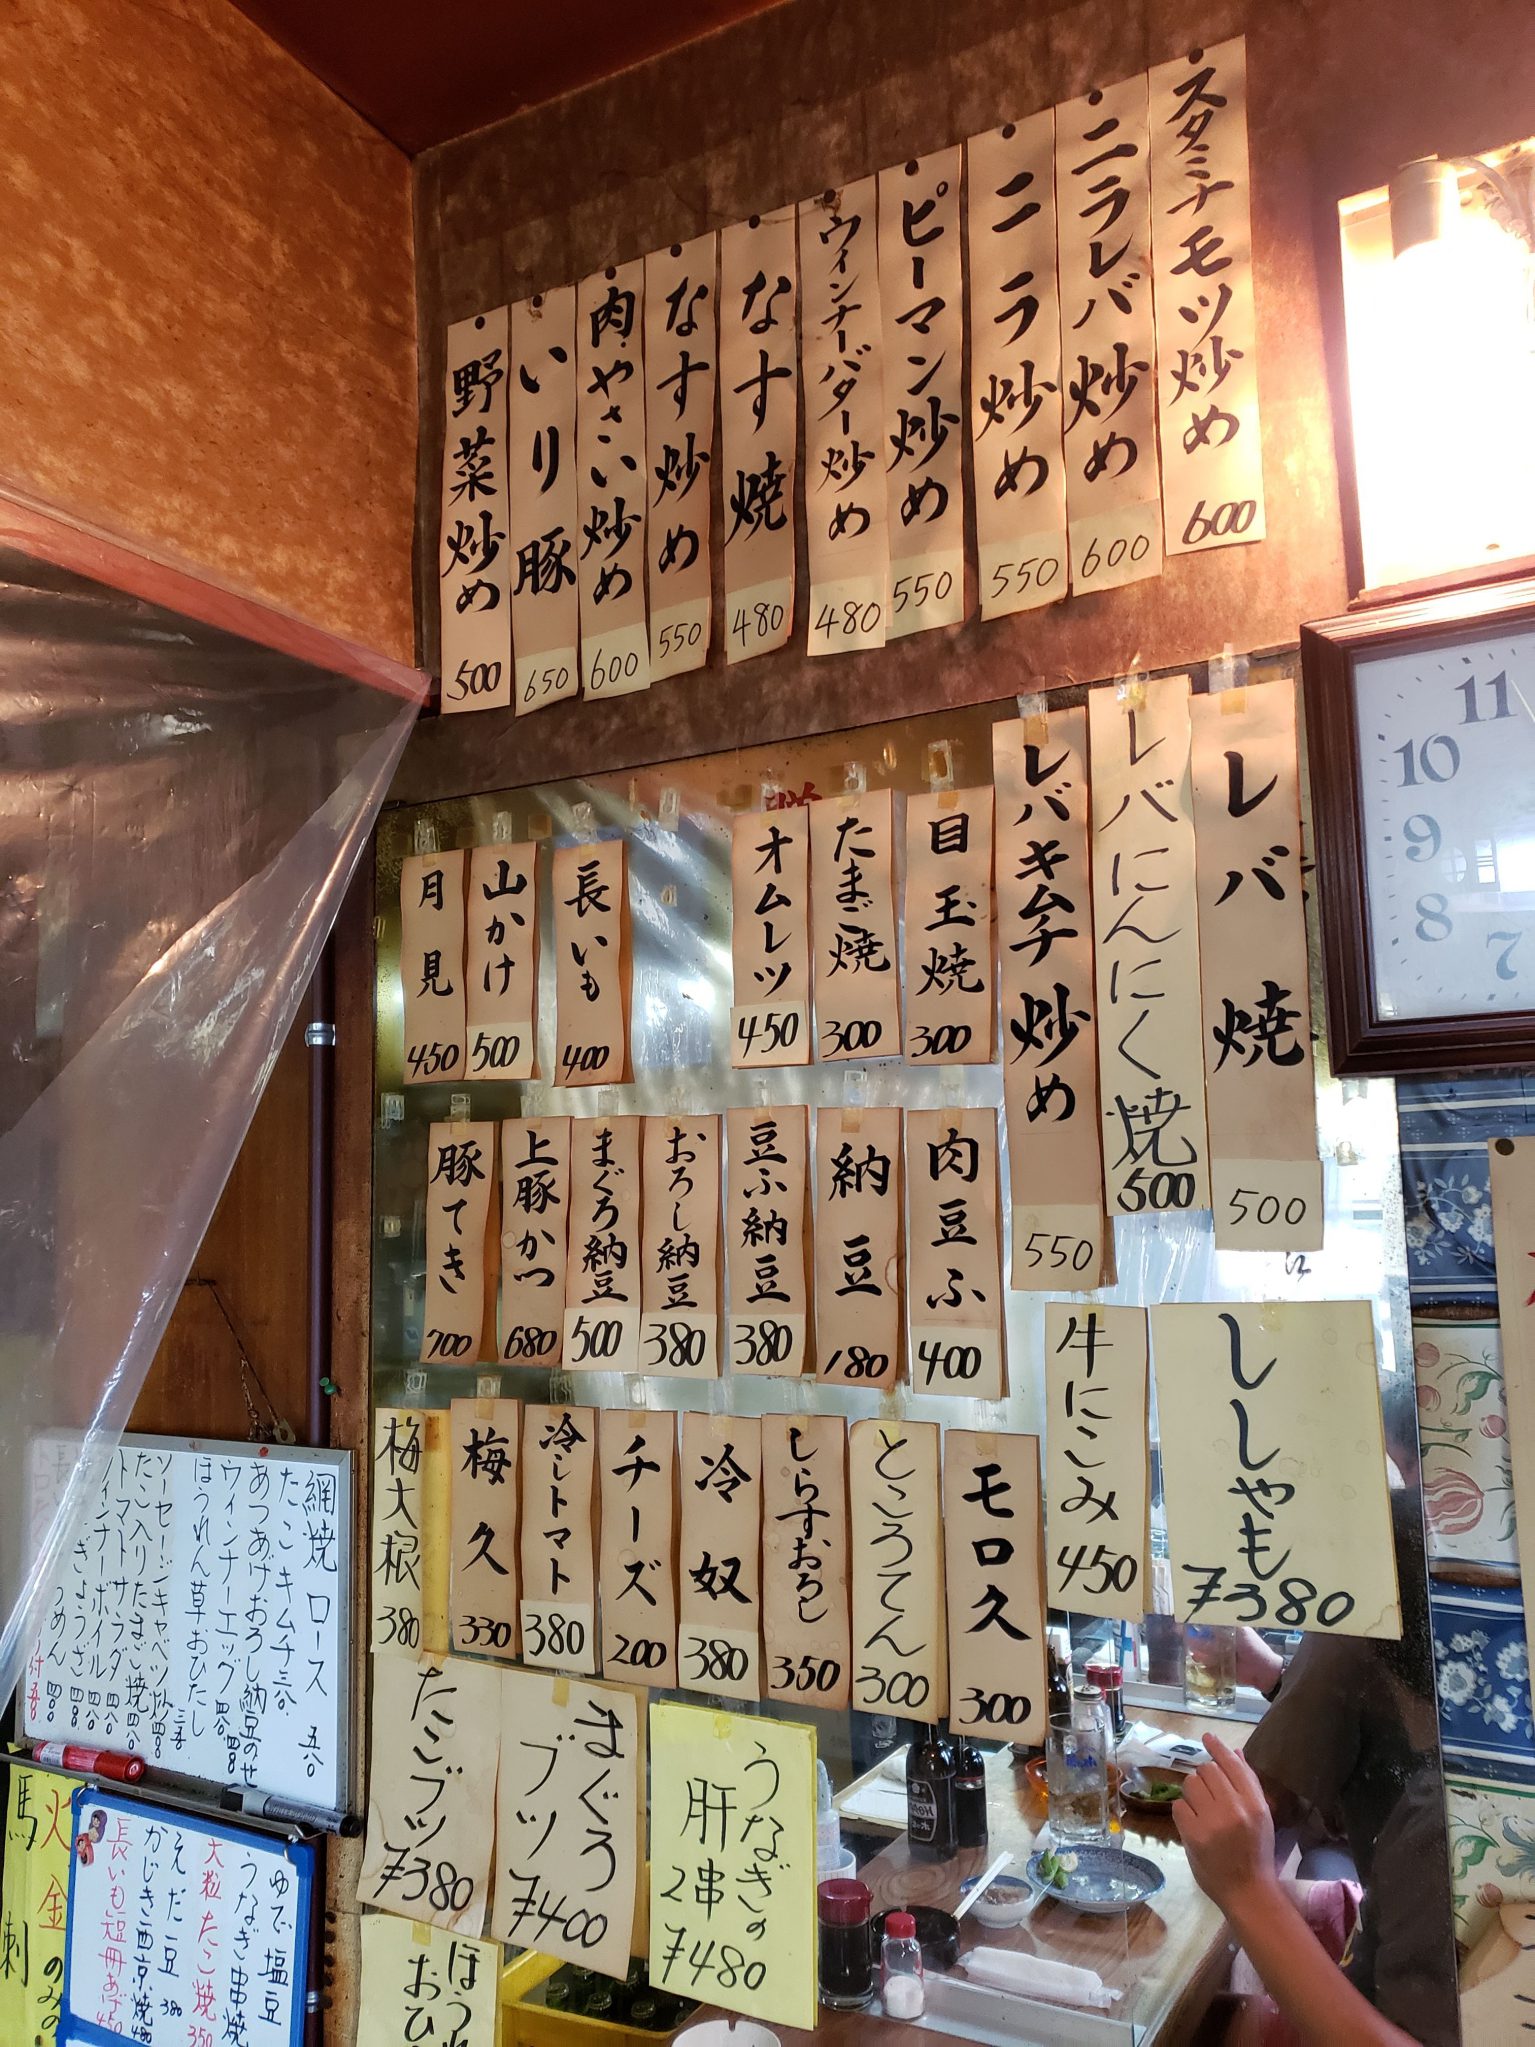 スタミナモツ炒め 600
ニラレバ炒め 600
ニラ炒め 550
ピーマン炒め 550
ウインナーバター炒め 480
なす焼 480
なす炒め 550
肉やさい炒め 600
いり豚 650
野菜炒め 500
レバ焼 500
レバにんにく焼 500
レバキムチ炒め 550
目玉焼 300
たまご焼 300
オムレツ 450
長いも 400
山かけ 500
月見 450
肉豆ふ 400
納豆 180
豆ふ納豆 380
おろし納豆 380
まぐろ納豆 500
上豚かつ 680
豚てき 700
ししゃも ¥380
牛にこみ 450
モロ久 300
ところてん 300
しらすおろし 350
冷奴 380
チーズ 200
冷しトマト 380
梅久 330
梅大根 380
うなぎの
肝2串
¥480
まぐろ
ブツ
¥400
たこブツ
¥380
ほう
おひ
網焼ロース 五八〇
たこキムチ 三八〇
あつあげおろし納豆のせ 四八〇
ウィンナーエッグ 四八〇
ほうれん草おひたし 三五〇
ソーセージキャベツ炒 四八〇
たこ入りたまご焼 四八〇
トマトサラダ 四八〇
ウィンナーボイル 四八〇
ゆで塩豆
うなぎ串焼
大粒たこ焼 350
えだ豆 380
かじき西京焼 480
長いも短冊あげ 450
火金のみの
馬刺
11
10
9
8
7